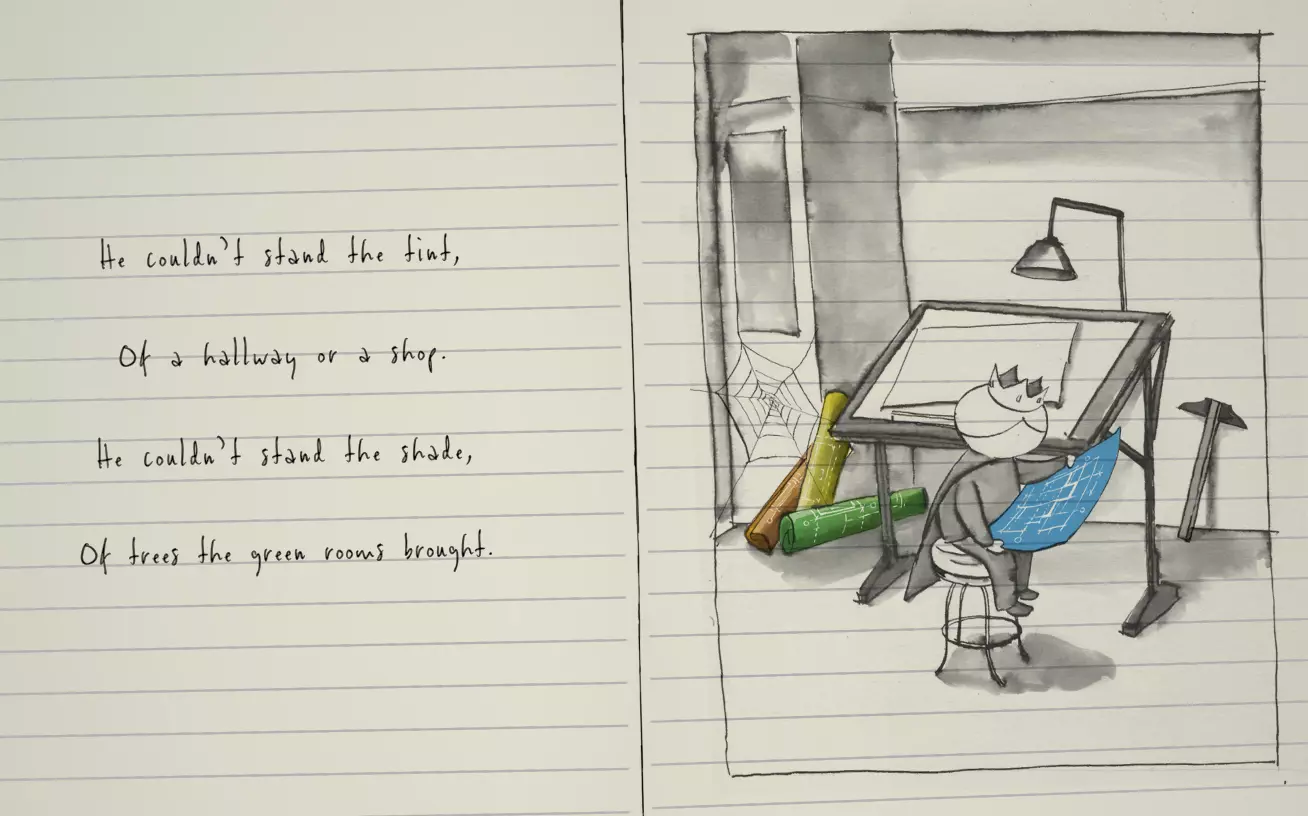 He couldn't stand the tint,
Of a hallway or a shop.
He couldn't stand the shade,
Of trees the green rooms brought.